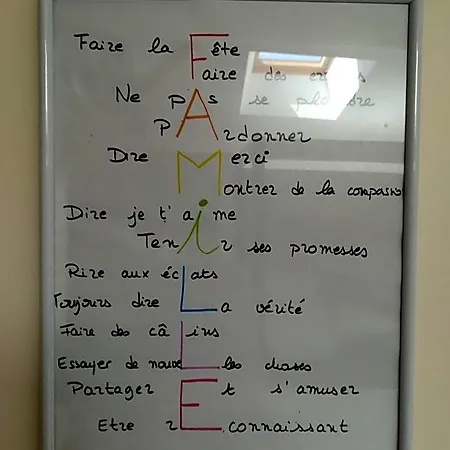 Faire la Fête
Faire des erreurs
Ne pAs se plaindre
PArdonner
Dire Merci
Montrer de la compassion
Dire je t'aime
Tenir ses promesses
Rire aux écLats
Toujours dire La vérité
Faire des câLins
Essayer de nouveLles choses
Partager Et s'amuser
Etre rEconnaissant